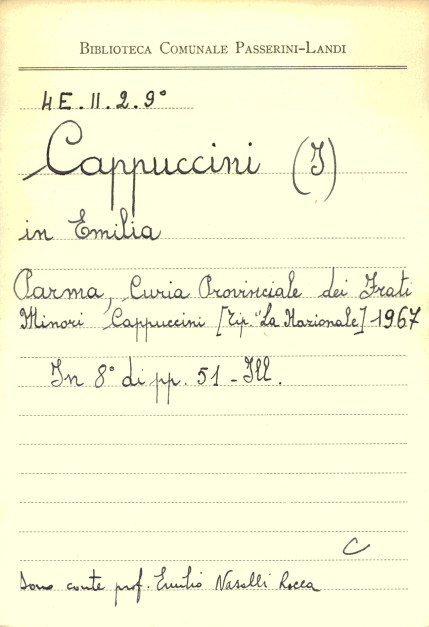 BIBLIOTECA COMUNALE PASSERINI-LANDI
4E.II.2.9°
Cappuccini (I)
in Emilia
Parma, Curia Provinciale dei Frati
Minori Cappuccini [Tip. "La Nazionale] 1967
In 8° di pp. 51 - Ill.
C
Dono conte prof. Emilio Nasalli Rocca